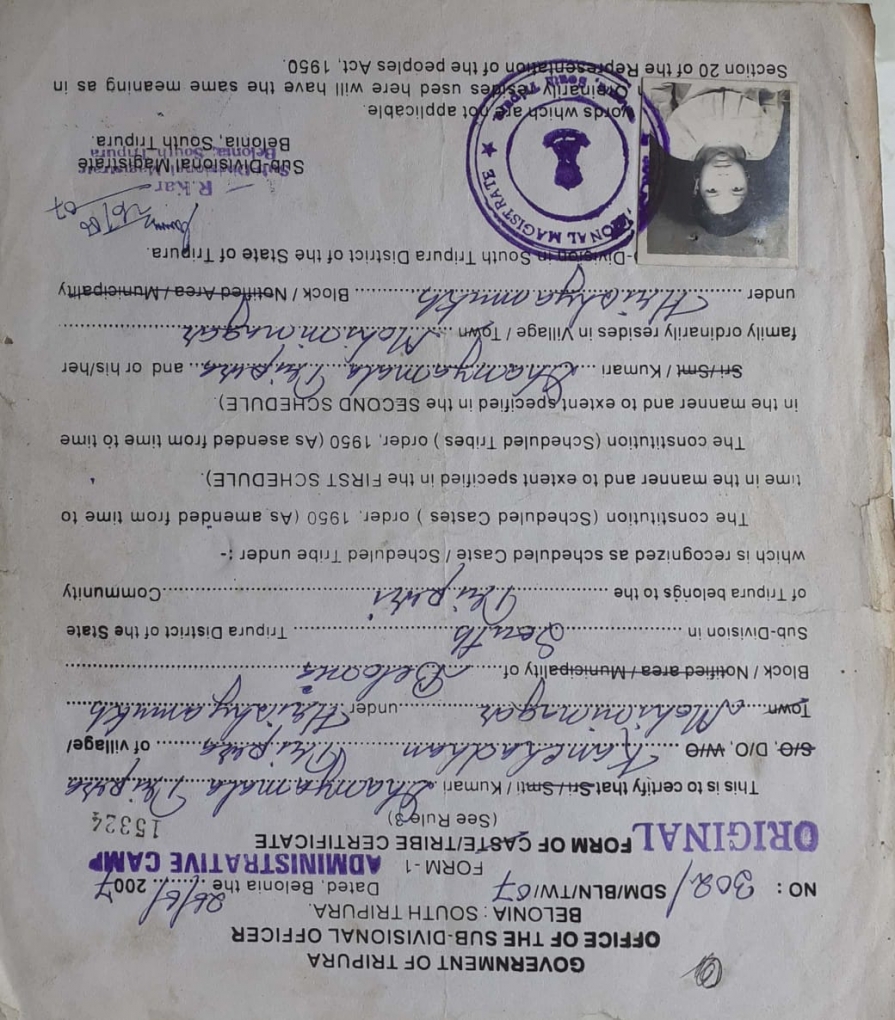 GOVERNMENT OF TRIPURA
OFFICE OF THE SUB-DIVISIONAL OFFICER
BELONIA : SOUTH TRIPURA.
NO : 302/SDM/BLN/TW/07 Dated, Belonia the 26/6/2007
FORM - 1 ADMINISTRATIVE CAMP
ORIGINAL FORM OF CASTE/TRIBE CERTIFICATE
(See Rule 3) 15324
This is to certify that Sri / Smti / Kumari Shamyamala Tripura
S/O, D/O, W/O Kanchadhan Tripura of village/
Town Mohaninagar under Hrishyamukh
Block / Notified area / Municipality of Belonia
Sub-Division in South Tripura District of the State
of Tripura belongs to the Tripuri Community
which is recognized as scheduled Caste / Scheduled Tribe under :-
The constitution (Scheduled Castes ) order, 1950 (As amended from time to
time in the manner and to extent specified in the FIRST SCHEDULE).
The constitution (Scheduled Tribes ) order, 1950 (As asended from time to time
in the manner and to extent specified in the SECOND SCHEDULE).
Sri/Smt / Kumari Shamyamala Tripura and or his/her
family ordinarily resides in Village / Town Mohaninagar
under Hrishyamukh Block / Notified Area / Municipality
-Division in South Tripura District of the State of Tripura.
26/6/07
R. Kar
Sub-Divisional Magistrate
Belonia, South Tripura
Sub-Divisional Magistrate
Belonia, South Tripura.
IONAL MAGISTRATE ★
South Tripura
words which are not applicable.
Orinarily resides used here will have the same meaning as in
Section 20 of the Representation of the peoples Act, 1950.